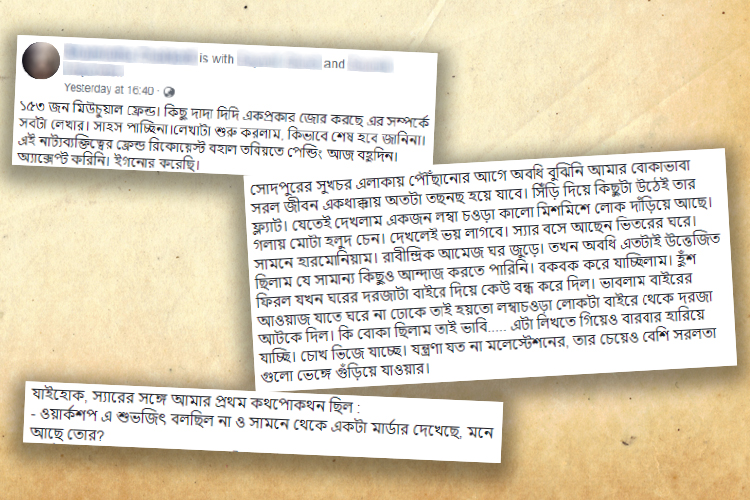 is with and
Yesterday at 16:40 ·
১৫৩ জন মিউচুয়াল ফ্রেন্ড। কিছু দাদা দিদি একপ্রকার জোর করছে এর সম্পর্কে
সবটা লেখার। সাহস পাচ্ছিনা।লেখাটা শুরু করলাম, কিভাবে শেষ হবে জানিনা।
এই নাট্যব্যক্তিত্বের ফ্রেন্ড রিকোয়েস্ট বহাল তবিয়তে পেন্ডিং আজ বহুদিন।
অ্যাক্সেপ্ট করিনি। ইগনোর করেছি।
সোদপুরের সুখচর এলাকায় পৌঁছানোর আগে অবধি বুঝিনি আমার বোকাভাবা
সরল জীবন একধাক্কায় অতটা তছনছ হয়ে যাবে। সিঁড়ি দিয়ে কিছুটা উঠেই তার
ফ্ল্যাট। যেতেই দেখলাম একজন লম্বা চওড়া কালো মিশমিশে লোক দাঁড়িয়ে আছে।
গলায় মোটা হলুদ চেন। দেখলেই ভয় লাগবে। স্যার বসে আছেন ভিতরের ঘরে।
সামনে হারমোনিয়াম। রাবীন্দ্রিক আমেজ ঘর জুড়ে। তখন অবধি এতটাই উত্তেজিত
ছিলাম যে সামান্য কিছুও আন্দাজ করতে পারিনি। বকবক করে যাচ্ছিলাম। হুঁশ
ফিরল যখন ঘরের দরজাটা বাইরে দিয়ে কেউ বন্ধ করে দিল। ভাবলাম বাইরের
আওয়াজ যাতে ঘরে না ঢোকে তাই হয়তো লম্বাচওড়া লোকটা বাইরে থেকে দরজা
আটকে দিল। কি বোকা ছিলাম তাই ভাবি..... এটা লিখতে গিয়েও বারবার হারিয়ে
যাচ্ছি। চোখ ভিজে যাচ্ছে। যন্ত্রণা যত না মলেস্টেশনের, তার চেয়েও বেশি সরলতা
গুলো ভেঙ্গে গুঁড়িয়ে যাওয়ার।
যাইহোক, স্যারের সঙ্গে আমার প্রথম কথপোকথন ছিল :
- ওয়ার্কশপ এ শুভজিৎ বলছিল না ও সামনে থেকে একটা মার্ডার দেখেছে, মনে
আছে তোর?